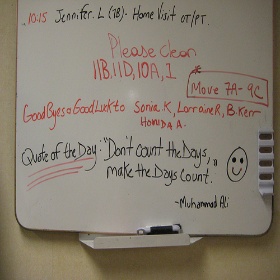 10:15 Jennifer. L (78). Home Visit OT/PT.
Please clean
11B, 11D, 10A, 1
* Move 7A - 9C
Good Byes & Good Luck to Sonia. K, Lorraine R, B. Kerr
Honida A.
Quote of the Day: "Don't count the Days,
make the Days Count."
~Muhammad Ali